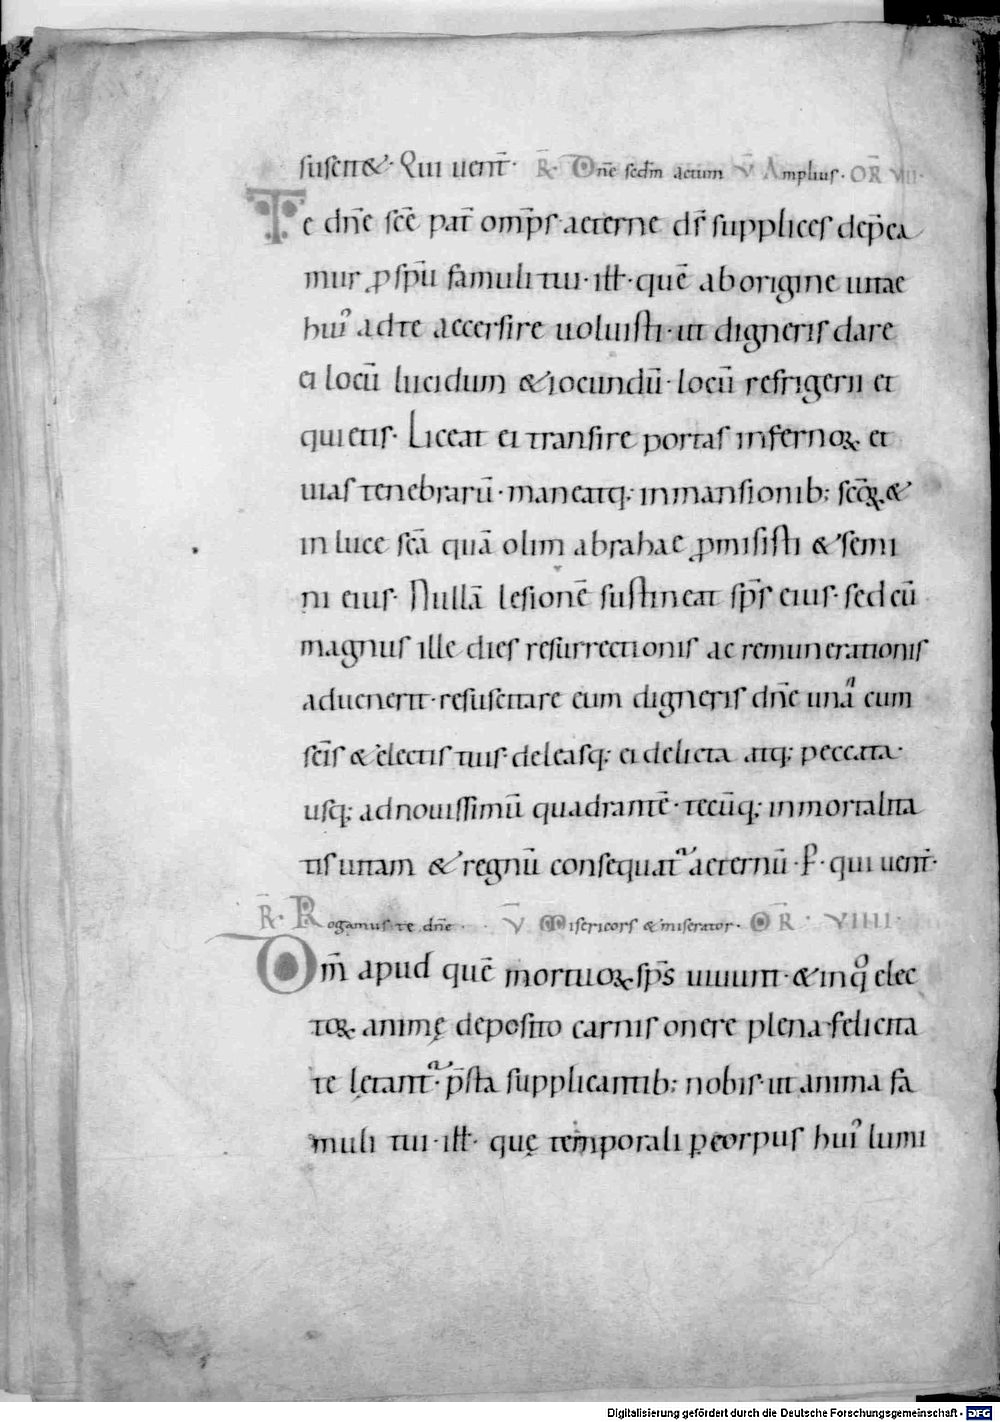 suscitet. Qui uent̄. R̄. Dnē scdm̄ actum V̄ Amplius. OR̄ VIII.
Te dnē scē pat̄ omp̄s aeterne ds̄ supplices dep̄ca
mur ꝓ spū famuli tui. ill. quē ab origine uitae
hui᾽ ad te accersire uoluisti. ut digneris dare
ei locū lucidum & iocundū. locū refrigerii et
quietis. Liceat ei transire portas infernoꝝ et
uias tenebrarū. maneatq; in mansionib; scōꝝ. &
in luce scā quā olim abrahae ꝓmisisti & semi
ni eius. Nullā lesionē sustineat sp̄s eius. sed cū
magnus ille dies resurrectionis ac remunerationis
aduenerit. resuscitare eum digneris dnē unā cum
scīs & electis tuis. deleasq; ei delicta atq; peccata.
usq; ad nouissimū quadrantē. tecūq; inmortalita
tis uitam & regnū consequat᷑ aeternū. P. qui uent̄.
R̄. Rogamus te dnē. V̄ Misericors & miserator. OR̄. VIIII.
Dm̄ apud quē mortuoꝝ sp̄s uiuunt. & in qͦ elec
toꝝ animę deposito carnis onere plena felicita
te letant᷑. p̄sta supplicantib; nobis. ut anima fa
muli tui. ill. quę temporali ꝑ corpus hui᾽ lumi
Digitalisierung gefördert durch die Deutsche Forschungsgemeinschaft - DFG